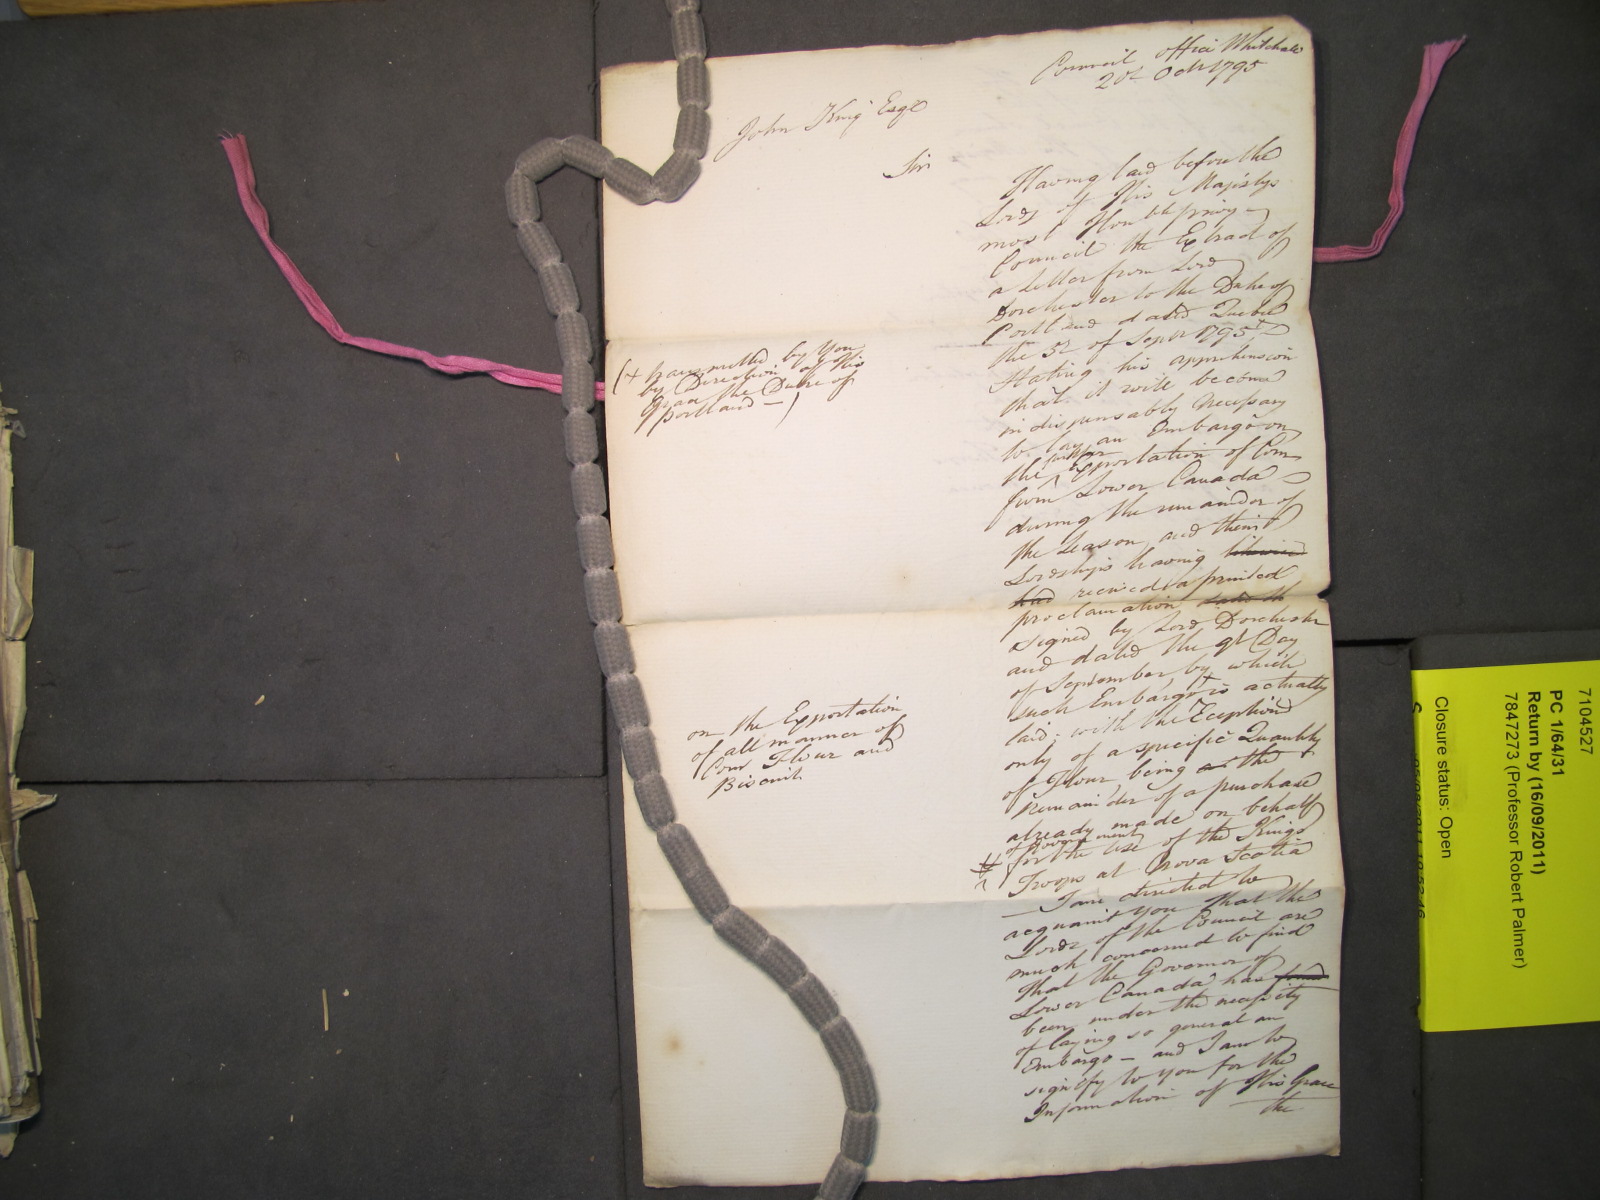 Council Office Whitehall
20th Octr 1795
John King Esqr
Sir
Having laid before the
Lords of His Majestys
most Honble privy
Council the Extract of
a Letter from Lord
Dorchester to the Duke of
Portland dated Quebec
the 5th of Septr 1795
(+ transmitted by You
by Direction of His
Grace the Duke of
Portland — )
Stating his apprehension
that it will become
indispensably necessary
to lay an Embargo on
the further Exportation of Corn
from Lower Canada
during the remainder of
the Season, and their
Lordships having likewise
had received a printed
proclamation
signed by Lord Dorchester
and dated the 9th Day
of September by which
such Embargo is actually
on the Exportation
of all manner of
Corn Flour and
Biscuit
laid; with the Exception
only of a specific Quantity
of Flour being as the
remainder of a purchase
already made on behalf
of Government
for the use of the Kings
Troops at Nova Scotia
— I am directed to
acquaint You that the
Lords of the Council are
much concerned to find
that the Governor of
Lower Canada has found
been under the necessity
of laying so general an
Embargo — and I am to
signify to You for the
Information of His Grace
the
7104527
PC 1/64/31
Return by (16/09/2011)
7847273 (Professor Robert Palmer)
Closure status: Open